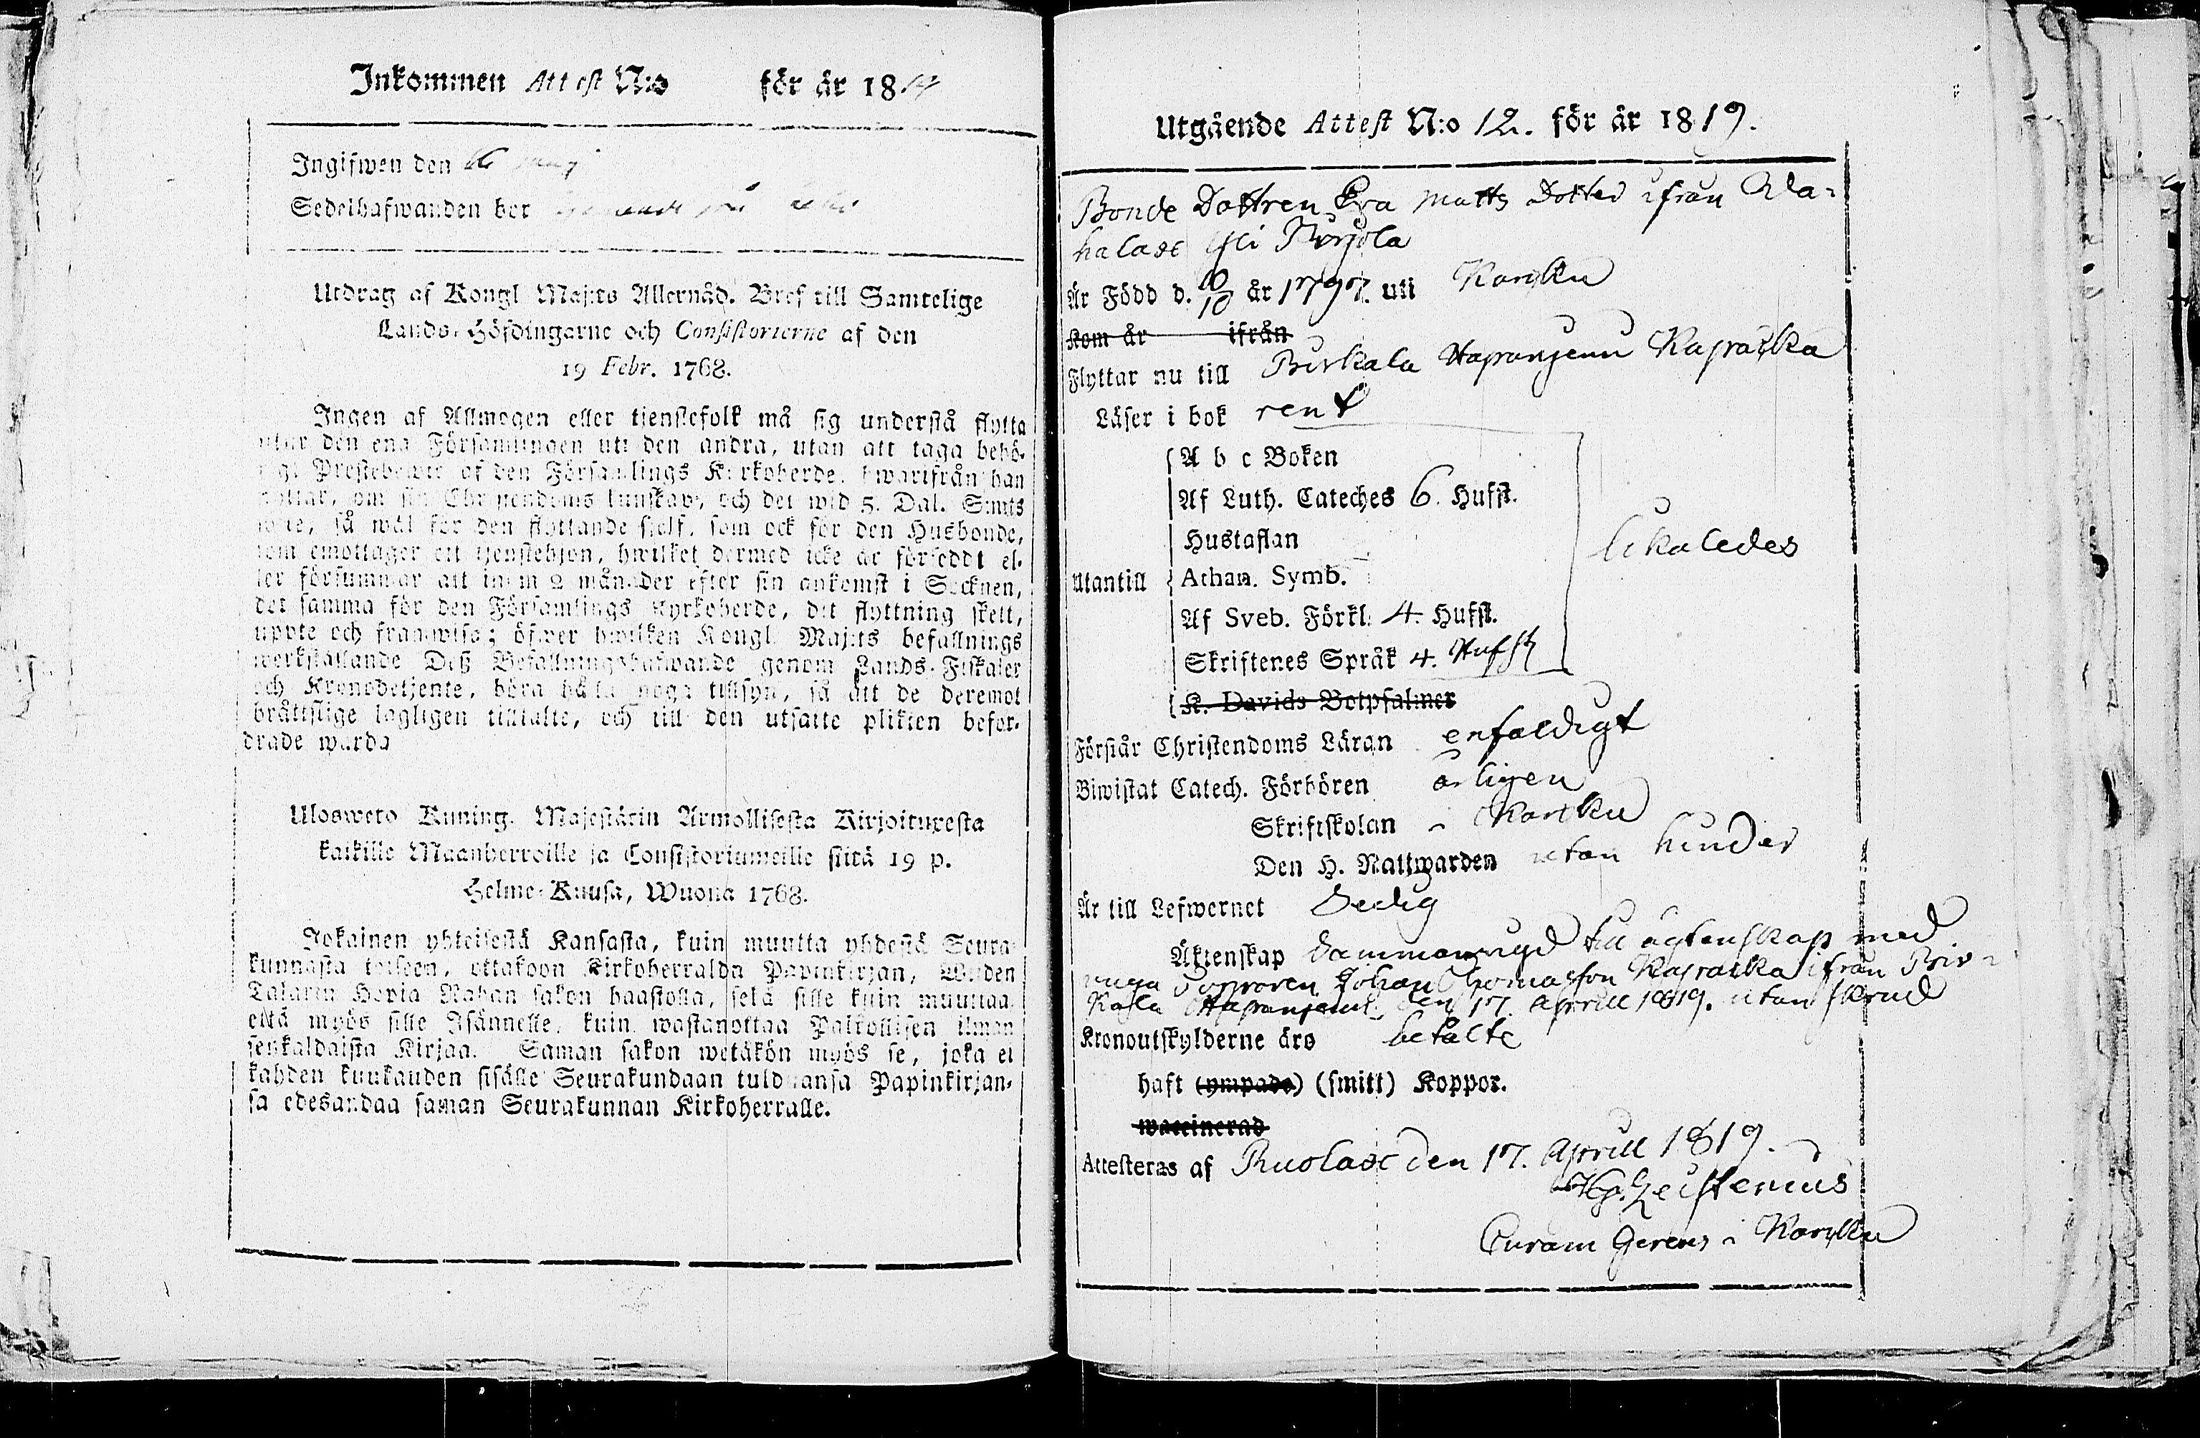 Inkommen Attest N:o för år 18
Ingifwen den
Sedelhafwanden bor
Utdrag af Kongl Maj:ts Allernåd. Bref till Samtelige
Lands-Höfdingarne och Consistorierne af den
19 Febr. 1768.
Ingen af Allmogen eller tjenstefolk må sig understå flytta
utur den ena Församlingen uti den andra, utan att taga behö-
Prestebewis of den Församlings Kyrkoherde, hwarifrån han
om sin Christendoms kunskap, och det wid 5. Dal. S:mts
wite, så wäl för den flyttande sjelf, som ock för den Husbonde,
som emottager ett tjenstehjon, hwilket dermed icke är försedt el-
ler försummar att inom 2 månader efter sin ankomst i Socknen,
det samma för den Församlings Kyrkoherde, dit flyttning skett,
uppte och framwisa; öfwer hwilken Kongl. Maj:ts befallnings
werkställande Deß Befallningshafwande genom Lands-Fiskaler
och Kronobetjente, böra hålla noga tillsyn, så att de deremot
bråttslige lagligen tilltalte, och till den utsatte plikten befor-
drade warda
Ulosweto Kuning. Majestätin Armollisesta Kirjoituxesta
kaikille Maanherroille ja Consistoriumeille siitä 19 p.
Helme-Kuusa, Wuona 1768.
Jokainen yhteisestä Kansasta, kuin muutta yhdestä Seura-
kunnasta toiseen, ottakoon Kirkoherralda Papinkirjan, Wijden
Talarin Hopia Rahan sakon haastolla, sekä sille kuin muuttaa,
että myös sille Isännelle, kuin wastanottaa Palkollisen ilman
senkaldaista Kirjaa. Saman sakon wetäkön myös se, joka ei
kahden kuukauden sisälle Seurakundaan tulduansa Papinkirjan-
sa edesandaa saman Seurakunnan Kirkoherralle.
Utgående Attest N:o 12. för år 1819.
Bonde Dottren Eva Matts Dotter ifrån Wa-
halade Yli Pirjola
Är Född d. 10/10 år 1797. uti Karkku
Kom år ifrån
Flyttar nu till Birkala Hapanjemi Kaparkka
Läser i bok rent
A b c Boken
Af Luth. Cateches 6. Hufst.
Hustaflan
likaledes
Utantill
Athan. Symb.
Af Sveb. Förkl: 4. Hufst.
Skriftenes Språk 4. Hufst
K. Davids Botpsalmer
Förstår Christendoms Läran enfaldigt
Biwistat Catech. Förhören årligen
Skriftskolan i Karkku
Den H. Nattwarden utan hinder
Är till Lefwernet Sedig
Äktenskap Sammanwigd till ägtenskap med
unga Johan Thomasson Kaparkka ifrån Bir-
kala Haparjemi den 17. Aprill 1819. utan skrud
Kronoutskylderne äro betalte
haft (ympade) (smitt) Koppor.
waccinerad
Attesteras af Ruolade den 17. Aprill 1819.
Curam Gerens i Karkku